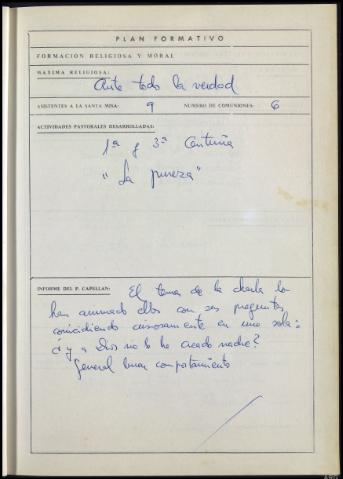 PLAN FORMATIVO
FORMACION RELIGIOSA Y MORAL
MAXIMA RELIGIOSA:
Ante todo la verdad
ASISTENTES A LA SANTA MISA: 9 NUMERO DE COMUNIONES: 6
ACTIVIDADES PASTORALES DESARROLLADAS:
1ª y 3ª Centuria
"La pureza"
INFORME DEL P. CAPELLAN: El tema de la charla lo
han animado ellos con sus preguntas,
coincidiendo curiosamente en una sola:
¿y a Dios no lo ha creado nadie?
General buen comportamiento